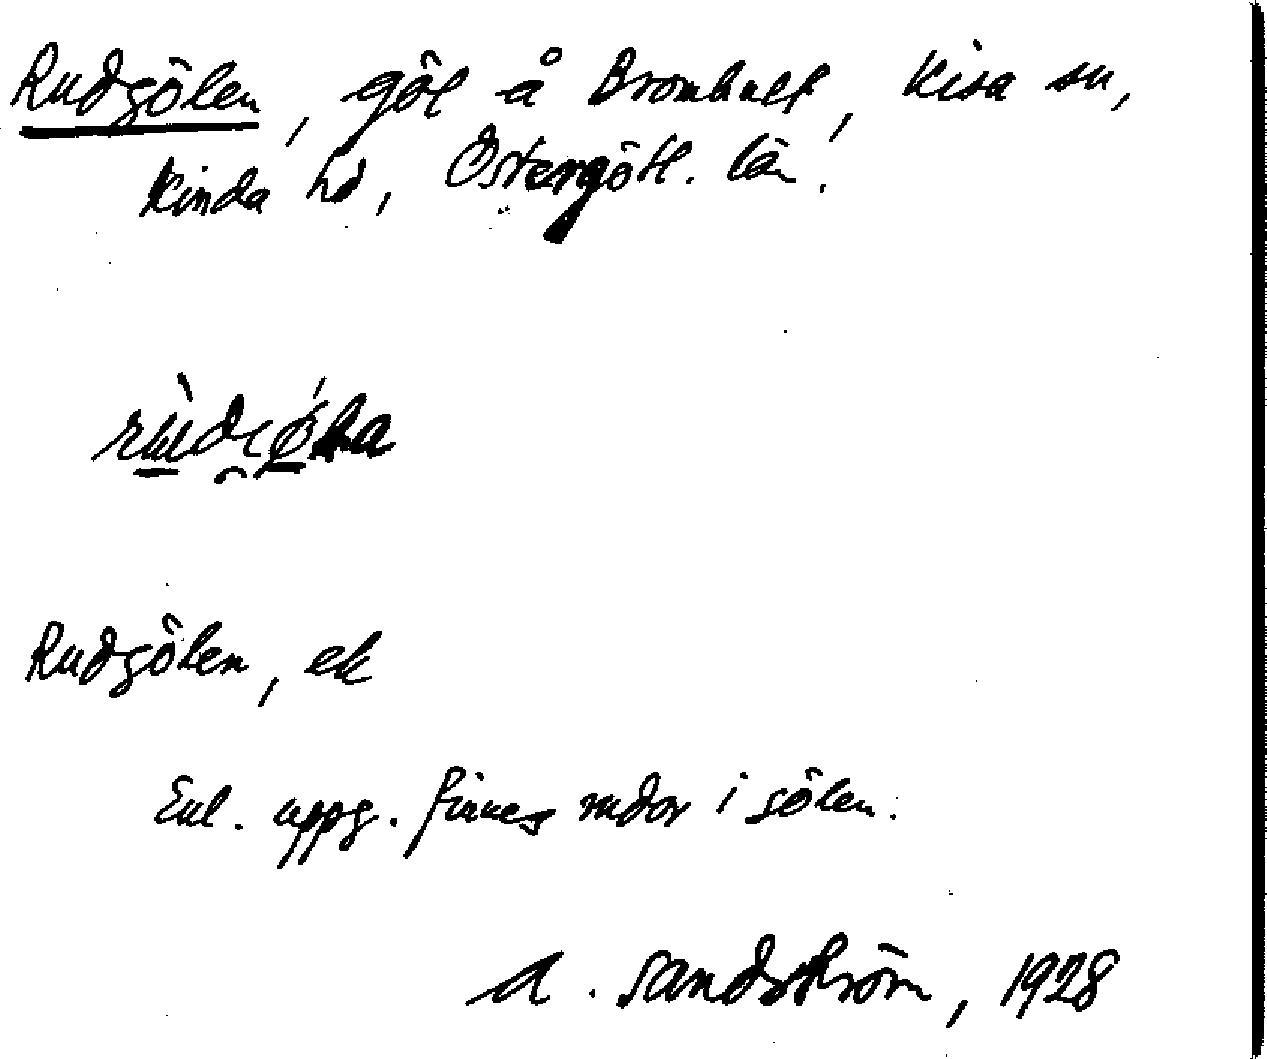 Rudgölen, göl å Bromhult, Kisa sn,
Kinda hd, Östergötl. län.
Rudgölen, ek
Enl. uppg. finnes rudor i gölen.
A. Sandström, 1928